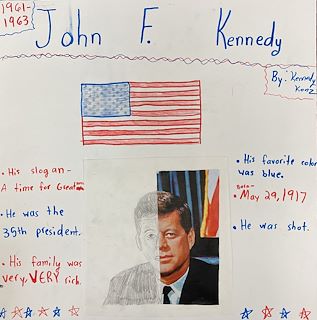 1961-
1963
John F. Kennedy
By: Kennedy
• His slogan-
A time for Great
• He was the
35th president.
• His family was
very, VERY rich.
• His favorite color
was blue.
Born-
• May 29, 1917
• He was shot.